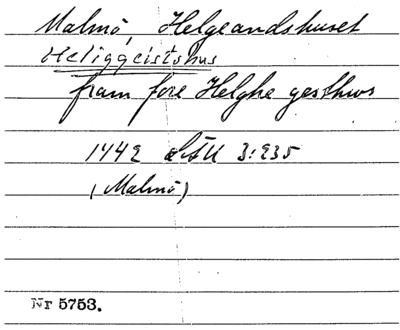 Malmö, Helgeandshuset
Heliggeistshus
fram fore Helghe gesthws
1442 LÅU 3:235
(Malmö)
Nr 5753.